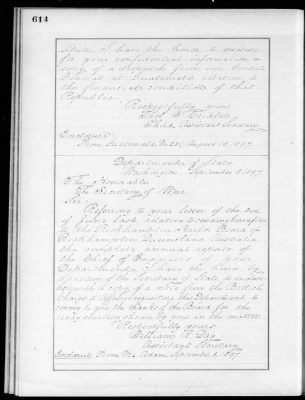 614
State, I have the honor to enclose
for your confidential information a
copy of a despatch from our Consul
General at Guatemala relative to
the financial condition of that
Republic.
Respectfully yours,
Thos. W. Cridler
Third Assistant Secretary
Enclosure:
From Guatemala, No. 231, August 18, 1897.
Department of State
Washington, September 8, 1897
The Honorable
The Secretary of War.
Sir:
Referring to your letter of the
of July last, relative to sending hereafter
to the Rockhampton Harbor Board of
Rockhampton, Queensland, Australia
the complete annual reports of
the Chief of Engineers of your
Department, I have the honor, by
direction of the Secretary of State, to enclose
herewith a copy of a note from the British
Chargé d'Affaires requesting this Department to
convey to you the thanks of the Board for the
ready shown by you in the matter.
Respectfully yours,
William R. Day
Assistant Secretary
Enclosure: From Mr. Adam, September 3, 1897